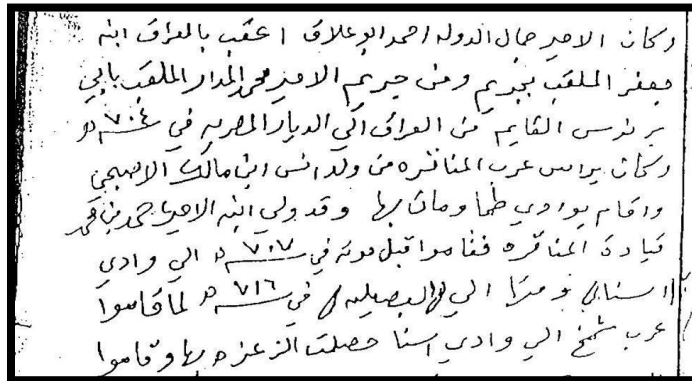 وكان الامير جمال الدوله احمد ابو علاق اعقب بالعراق ابنه
جعفر الملقب بجريم ومن جريم الامير محمد المدار الملقب بابي
برنوس القايم من العراق الي الديار المصريه في سنة ٧٠٤ هـ
وكان يراس عرب المناقره من ولد انس ابن مالك الاصبحي
واقام بوادي طما ومات بها وقد ولي ابنه الامير احمد بن محمد
قيادة المناقره فقاموا قبل موته في سنة ٧٠٧ هـ الي وادي
اسنا ومنها الي البصيليه في سنة ٧١٦ هـ لما قاموا
عرب شمخ الي وادي اسنا حصلت الزعزعه بها وقاموا